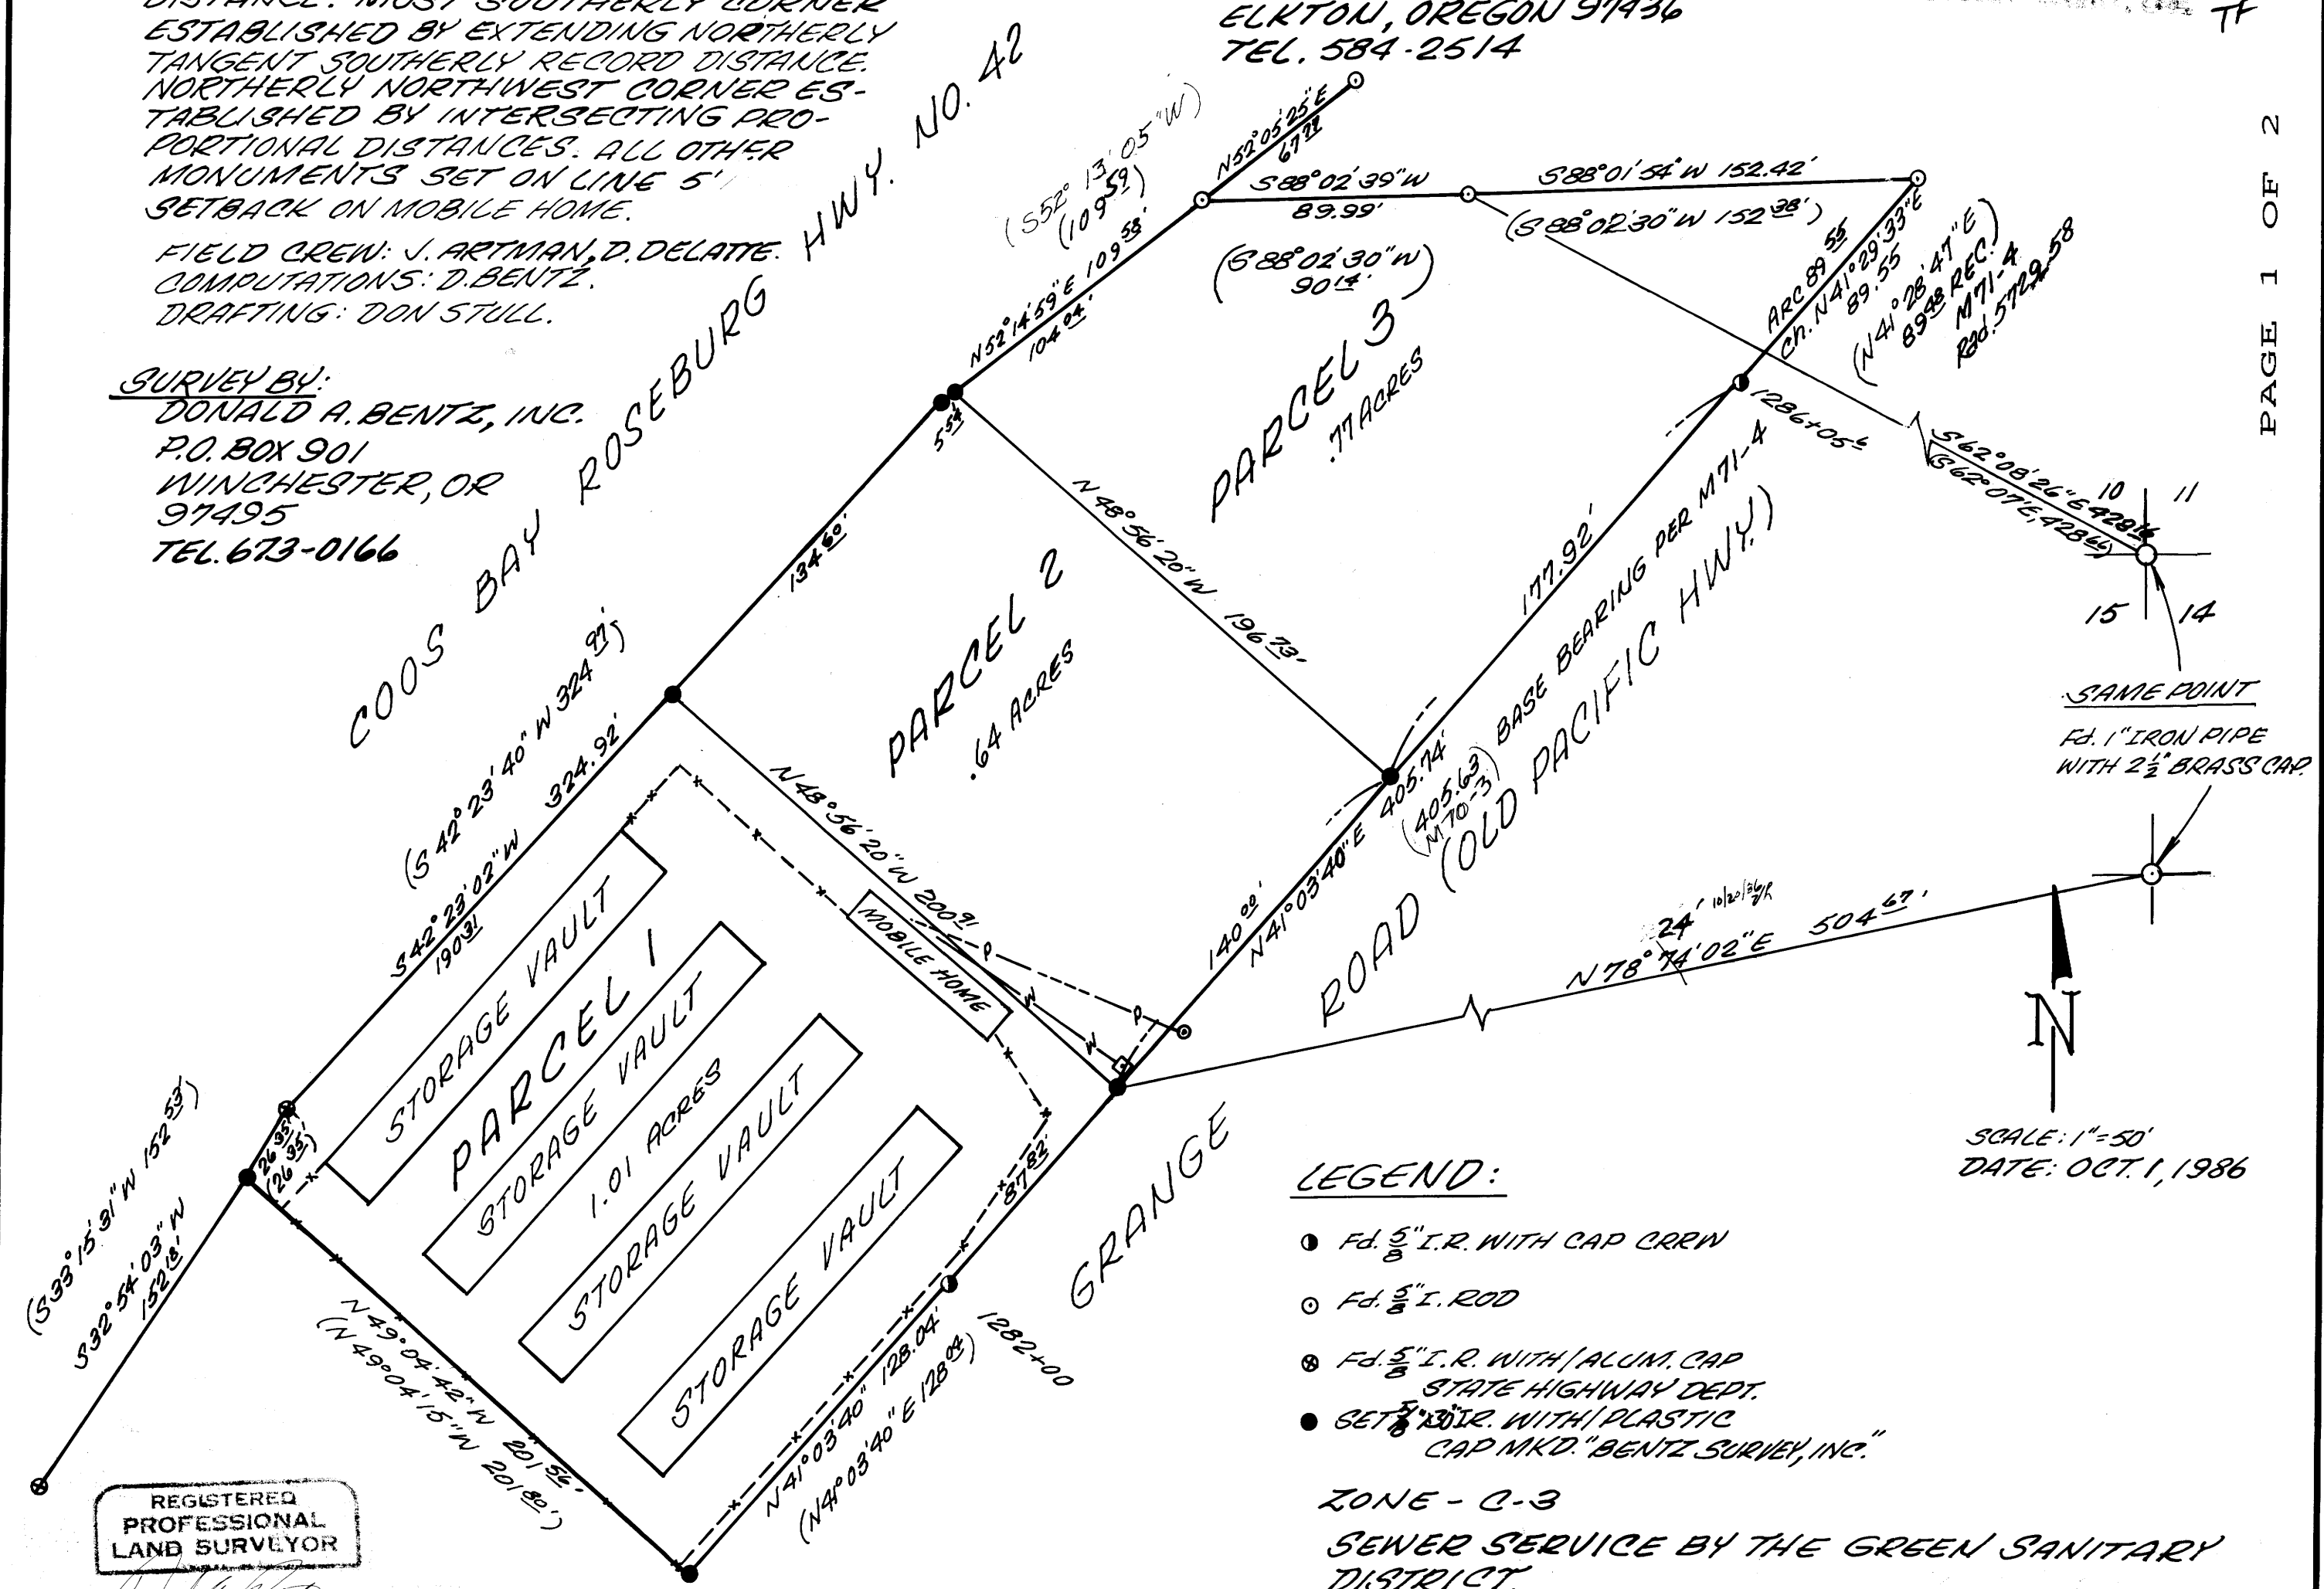 DISTANCE. MOST SOUTHERLY CORNER
ESTABLISHED BY EXTENDING NORTHERLY
TANGENT SOUTHERLY RECORD DISTANCE.
NORTHERLY NORTHWEST CORNER ES-
TABLISHED BY INTERSECTING PRO-
PORTIONAL DISTANCES. ALL OTHER
MONUMENTS SET ON LINE 5'
SETBACK ON MOBILE HOME.
FIELD CREW: J. ARTMAN, D. DELATTE.
COMPUTATIONS: D. BENTZ.
DRAFTING: DON STULL.
SURVEY BY:
DONALD A. BENTZ, INC.
P.O. BOX 901
WINCHESTER, OR
97495
TEL. 673-0166
ELKTON, OREGON 97436
TEL. 584-2514
PAGE 1 OF 2
COOS BAY ROSEBURG HWY. NO. 42
(S52° 13' 05" W)
(109 59)
N52° 05' 25" E
67 79
S88° 02' 39" W
89.99'
S88° 01' 54" W 152.42'
(S88° 02' 30" W 152 38')
(S88° 02' 30" W)
90 14'
N52° 14' 59" E 109 58'
104 04'
5 54
ARC 89 55
Ch. N41° 29' 33" E
89.55
(N41° 28' 47" E)
89 48 REC.)
M71-4
Rad. 5729.58
1286+05 6
S62° 08' 26" E 428 16
(S62° 07' E, 428 66)
10
11
15
14
SAME POINT
Fd. 1" IRON PIPE
WITH 2 1/2" BRASS CAP.
PARCEL 3
.77 ACRES
N 48° 56' 20" W 196 73'
177.92'
BASE BEARING PER M71-4
134 60'
PARCEL 2
.64 ACRES
(S 42° 23' 40" W 324 97')
S 42° 23' 02" W 324.92'
190 31
N 48° 56' 20" W 200 91
140 00'
N 41° 03' 40" E 405.74'
(405.63)
(M70-3)
GRANGE ROAD (OLD PACIFIC HWY.)
24'
N 78° 74' 02" E 504 67'
N
SCALE: 1"=50'
DATE: OCT. 1, 1986
MOBILE HOME
P
W
W
P
STORAGE VAULT
PARCEL 1
STORAGE VAULT
1.01 ACRES
STORAGE VAULT
STORAGE VAULT
26 35'
(26 35')
(S33° 15' 31" W 152 53')
S32° 54' 03" W
152 18'
N 49° 04' 42" W 201 56'
(N 49° 04' 15" W 201 80')
87 82'
N 41° 03' 40" 128.04'
(N 41° 03' 40" E 128 04)
1282+00
LEGEND:
Fd. 5/8" I.R. WITH CAP CRRW
Fd. 5/8" I. ROD
Fd. 5/8" I.R. WITH/ALUM. CAP
STATE HIGHWAY DEPT.
SET 5/8" I.R. WITH/PLASTIC
CAP MKD. "BENTZ SURVEY, INC."
ZONE - C-3
SEWER SERVICE BY THE GREEN SANITARY
DISTRICT.
REGISTERED
PROFESSIONAL
LAND SURVEYOR